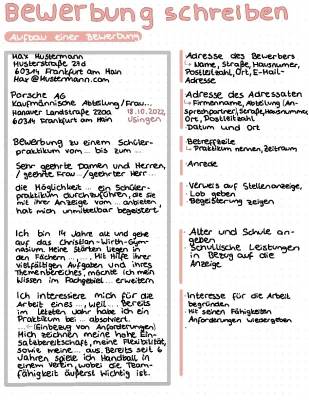 Bewerbung schreiben
Aufbau einer Bewerbung
Max Mustermann
Musterstraße 27d
60314 Frankfurt am Main
Max@Mustermann.com
Porsche AG
Kaufmännische Abteilung/Frau...
Hanauer Landstraße 220a
60314 Frankfurt am Main
18.10.2022,
Usingen
Bewerbung zu einem Schüler-
praktikum vom... bis zum ...
Sehr geehrte Damen und Herren,
/ geehrte Frau.../geehrter Herr...
die Möglichkeit .. ein Schüler-
praktikum durchzuführen, die sie
mit ihrer Anzeige vom ... anbieten,
hat mich unmittelbar begeistert.
Ich bin 14 Jahre alt und gehe
auf das Christian-Wirth-Gym-
nasium. Meine Stärken liegen in
den Fächern ..., ..., ... Mit Hilfe ihrer
vielfältigen Aufgaben und ihres
Themenbereiches, möchte ich mein
Wissen im Fachgebiet ... erweitern.
Ich interessiere mich für die
Arbeit eines ..., weil... Bereits
im letzten Jahr habe ich ein
Praktikum bei ... absolviert.
...(Einbezug von Anforderungen)
Mich zeichnen meine hohe Ein-
satzbereitschaft, meine Flexibilität,
sowie meine ... aus. Bereits seit 6
Jahren spiele ich Handball in
einem Verein, wobei die Team-
fähigkeit äußerst wichtig ist.
Adresse des Bewerbers
↳ Name, Straße, Hausnummer,
Postleitzahl, Ort, E-Mail-
Adresse
Adresse des Adressaten
↳ Firmenname, Abteilung (An-
sprechpartner), Straße, Hausnummer,
Ort, Postleitzahl
Datum und Ort
Betreffzeile
↳ Praktikum nennen, Zeitraum
Anrede
· Verweis auf Stellenanzeige,
· Lob geben
· Begeisterung zeigen
· Alter und Schule an-
geben
· Schulische Leistungen
in Bezug auf die
Anzeige
· Interesse für die Arbeit
begründen
· Mit seinen Fähigkeiten
Anforderungen wiedergeben